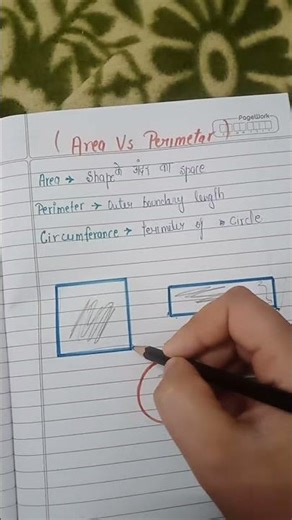 PageWork
( Area Vs Perimeter )
Area → Shape के अंदर का space
Perimeter → Outer boundary length
Circumferance → Perimeter of Circle